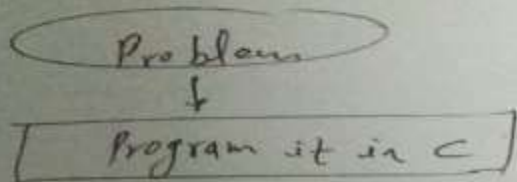 Problem
Program it in C